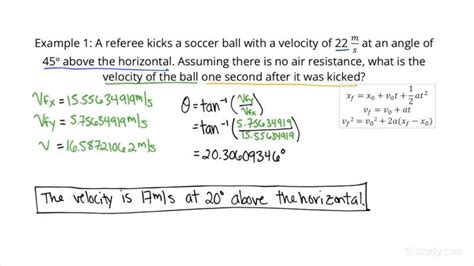 Example 1: A referee kicks a soccer ball with a velocity of 22 m/s at an angle of
45° above the horizontal. Assuming there is no air resistance, what is the
velocity of the ball one second after it was kicked?
V_fx = 15.55634919 m/s
V_fy = 5.75634919 m/s
V = 16.58721062 m/s
θ = tan⁻¹(V_fy/V_fx)
= tan⁻¹(5.75634919/15.55634919)
= 20.30609346°
x_f = x_0 + v_0t + 1/2at²
v_f = v_0 + at
v_f² = v_0² + 2a(x_f − x_0)
The velocity is 17m/s at 20° above the horizontal.
Study.com